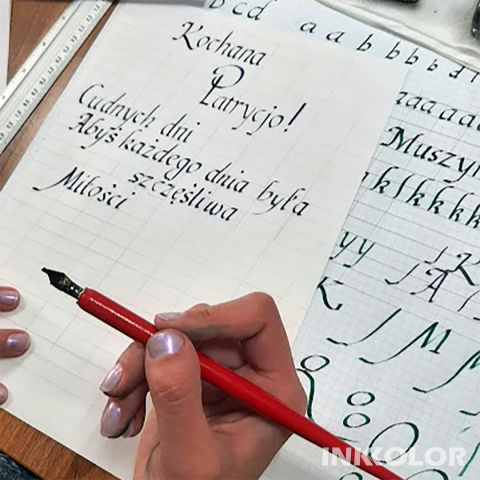 Kochana
Patrycjo!
Cudnych dni
Abyś każdego dnia była
szczęśliwa
Miłości
b c d
a a b b b b d
a a a a a
Muszyn
k k k k k k
y y
K
A
K
M
M
INKKOLOR